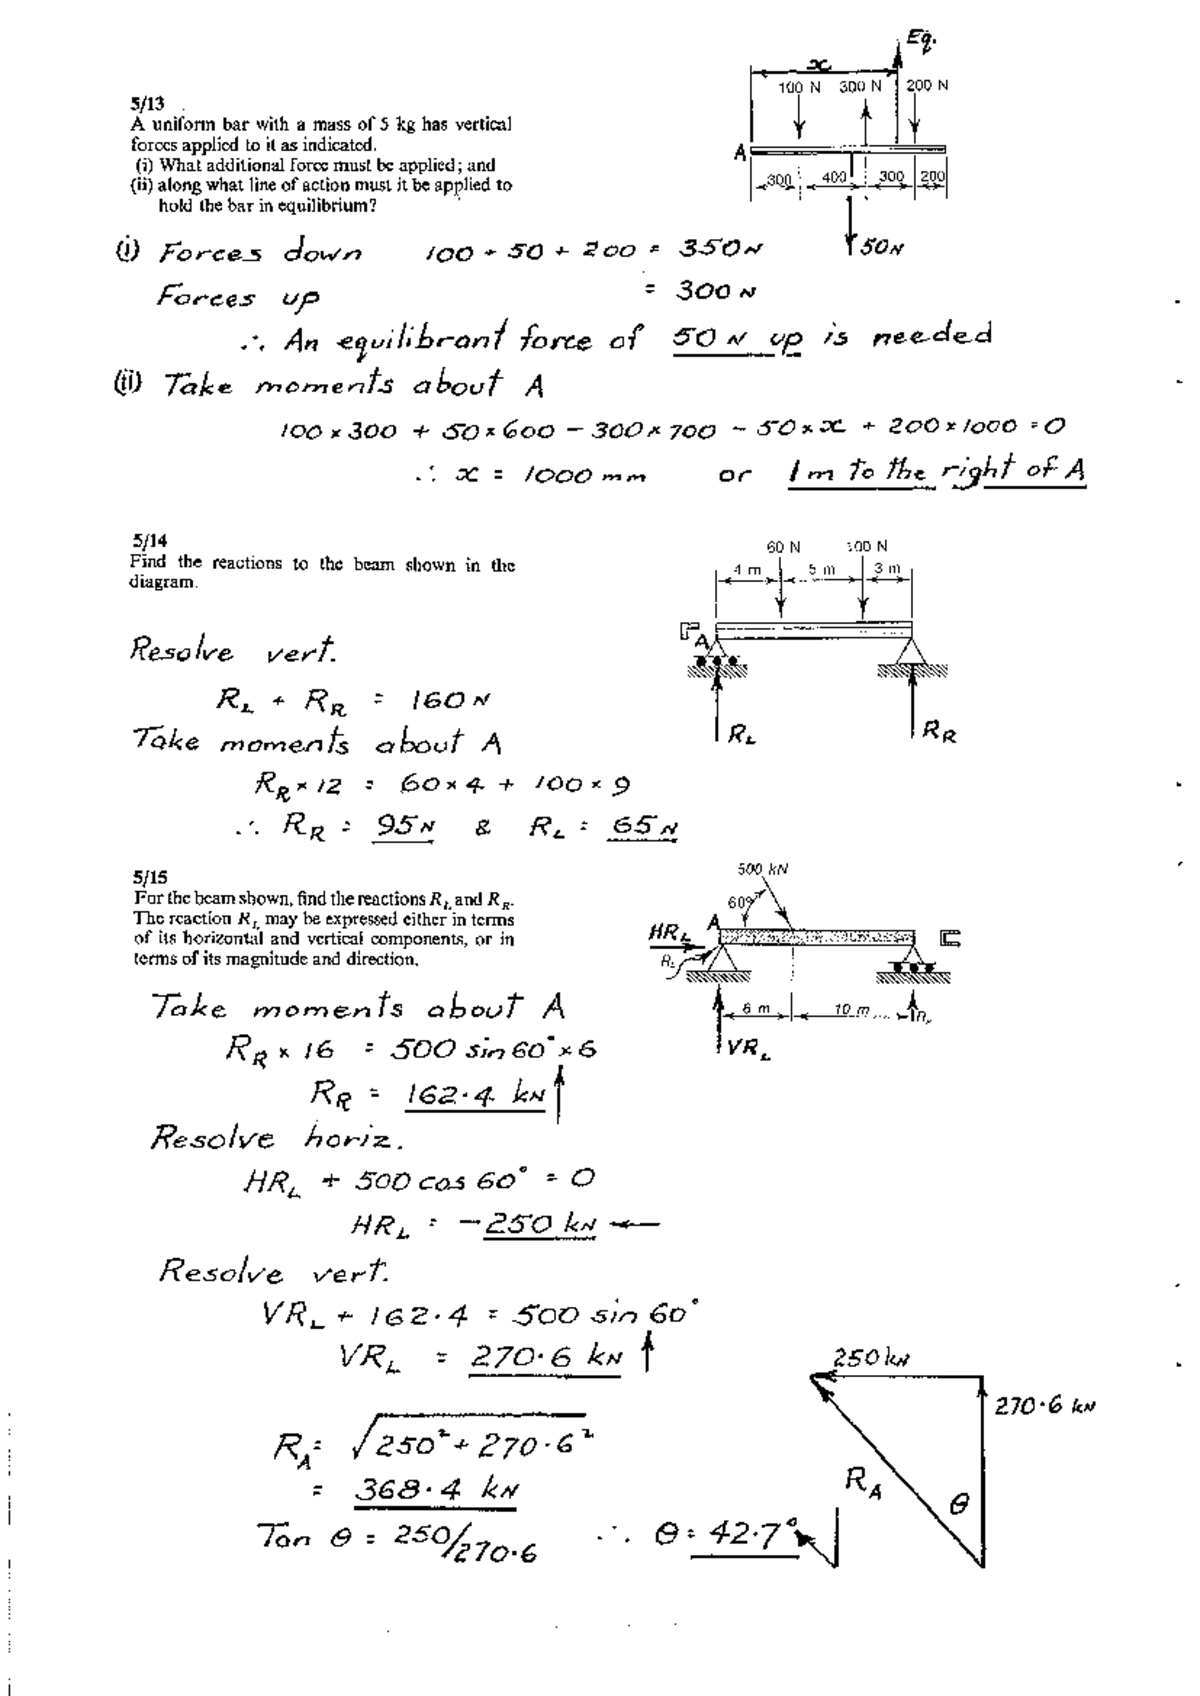 Eq.
x
100 N 300 N 200 N
5/13
A uniform bar with a mass of 5 kg has vertical
forces applied to it as indicated.
(i) What additional force must be applied; and
(ii) along what line of action must it be applied to
hold the bar in equilibrium?
A
300 400 300 200
50N
(i) Forces down 100 + 50 + 200 = 350N
Forces up = 300 N
∴ An equilibrant force of 50 N up is needed
(ii) Take moments about A
100 × 300 + 50 × 600 - 300 × 700 - 50 × x + 200 × 1000 = 0
∴ x = 1000 mm or 1m to the right of A
5/14
Find the reactions to the beam shown in the
diagram.
60 N 100 N
4 m 5 m 3 m
A
R_L R_R
Resolve vert.
R_L + R_R = 160 N
Take moments about A
R_R × 12 = 60 × 4 + 100 × 9
∴ R_R = 95N & R_L = 65N
5/15
For the beam shown, find the reactions R_L and R_R.
The reaction R_L may be expressed either in terms
of its horizontal and vertical components, or in
terms of its magnitude and direction.
500 kN
60°
A
HR_L
R_L
6 m 10 m
VR_L
Take moments about A
R_R × 16 = 500 sin 60° × 6
R_R = 162.4 kN ↑
Resolve horiz.
HR_L + 500 cos 60° = 0
HR_L = -250 kN ←
Resolve vert.
VR_L + 162.4 = 500 sin 60°
VR_L = 270.6 kN ↑
250 kN
270.6 kN
R_A
θ
R_A = √250² + 270.6²
= 368.4 kN
Tan θ = 250/270.6 ∴ θ = 42.7°